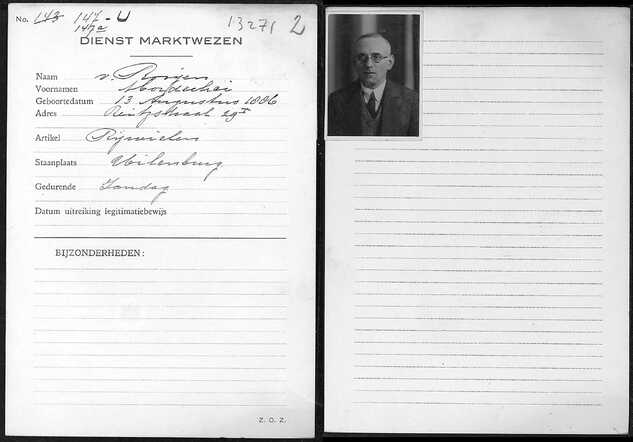 No. 143 147-U
147a
13271 2
DIENST MARKTWEZEN
Naam v. Rooijen
Voornamen Mordechai
Geboortedatum 13 Augustus 1886
Adres Reitzstraat
Artikel Rijwielen
Staanplaats Uilenburg
Gedurende Zondag
Datum uitreiking legitimatiebewijs
BIJZONDERHEDEN:
Z. O. Z.